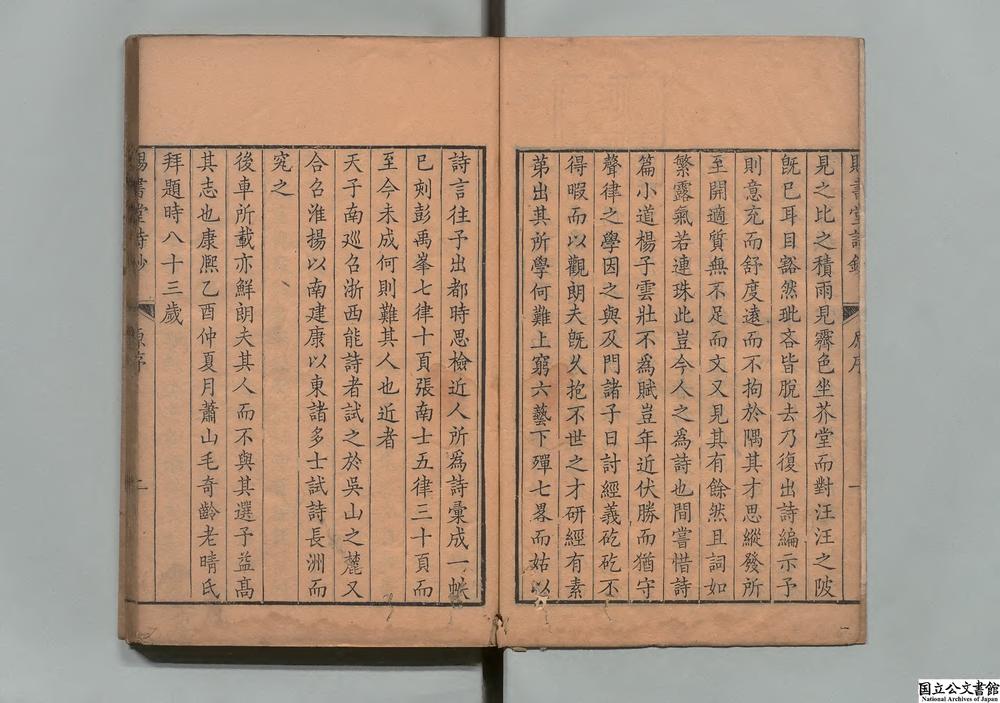 賜書堂詩鈔 原序 一
見之比之積雨見霽色坐芥堂而對汪汪之陂
旣已耳目豁然玼吝皆脫去乃復出詩編示予
則意充而舒度遠而不拘於隅其才思縱發所
至開適質無不足而文又見其有餘然且詞如
繁露氣若連珠此豈今人之爲詩也間嘗惜詩
篇小道楊子雲壯不爲賦豈年近伏勝而猶守
聲律之學因之與及門諸子日討經義矻矻不
得暇而以觀朗夫旣久抱不世之才研經有素
苐出其所學何難上窮六藝下殫七畧而姑以
詩言往予出都時思檢近人所爲詩彙成一帙
已刻彭禹峯七律十頁張南士五律三十頁而
至今未成何則難其人也近者
天子南廵召浙西能詩者試之於吳山之麓又
合召淮揚以南建康以東諸多士試詩長洲而
究之
後車所載亦鮮朗夫其人而不與其選予益高
其志也康熈乙酉仲夏月蕭山毛奇齡老晴氏
拜題時八十三歲
賜書堂詩鈔 原序 二
一
国立公文書館
National Archives of Japan